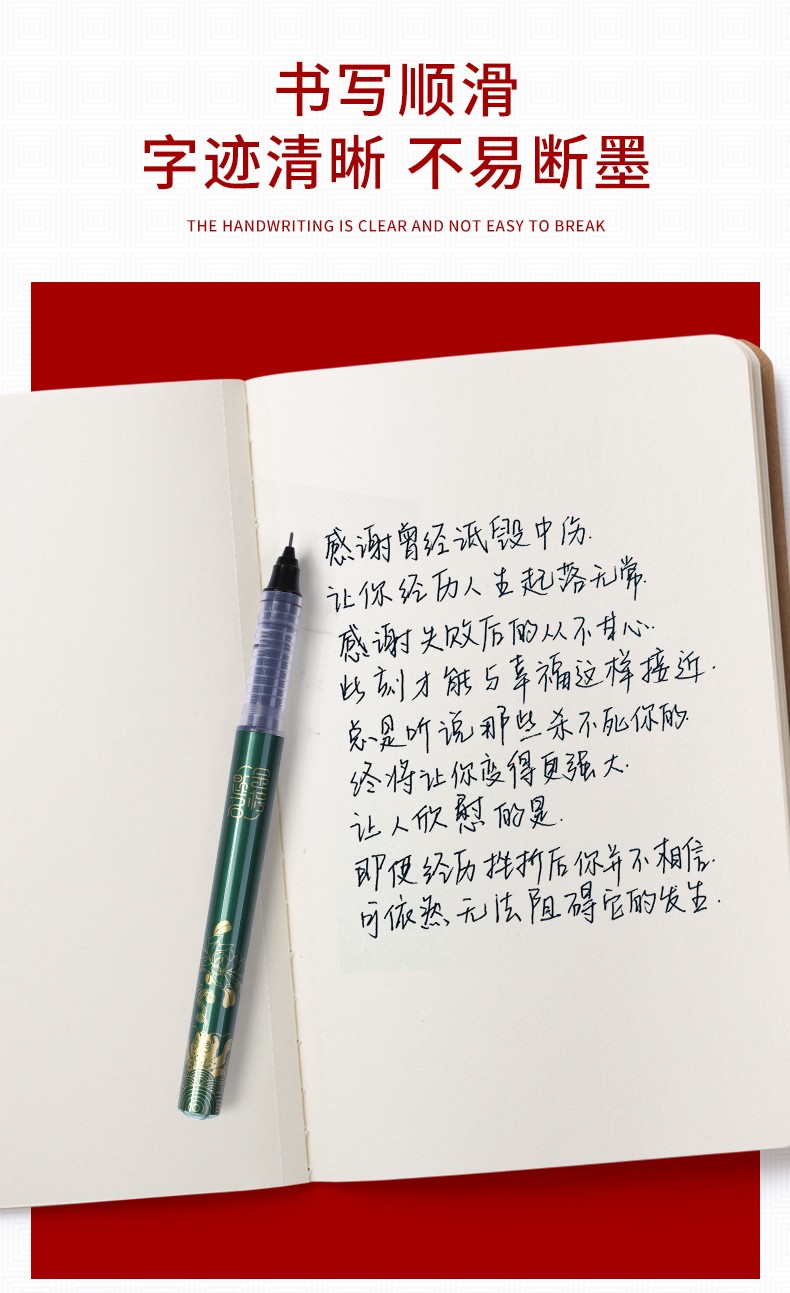 书写顺滑
字迹清晰 不易断墨
THE HANDWRITING IS CLEAR AND NOT EASY TO BREAK
感谢曾经诋毁中伤.
让你经历人生起落无常.
感谢失败后的从不甘心.
此刻才能与幸福这样接近.
总是听说那些杀不死你的.
终将让你变得更强大.
让人欣慰的是.
即便经历挫折后你并不相信.
可依然无法阻碍它的发生.